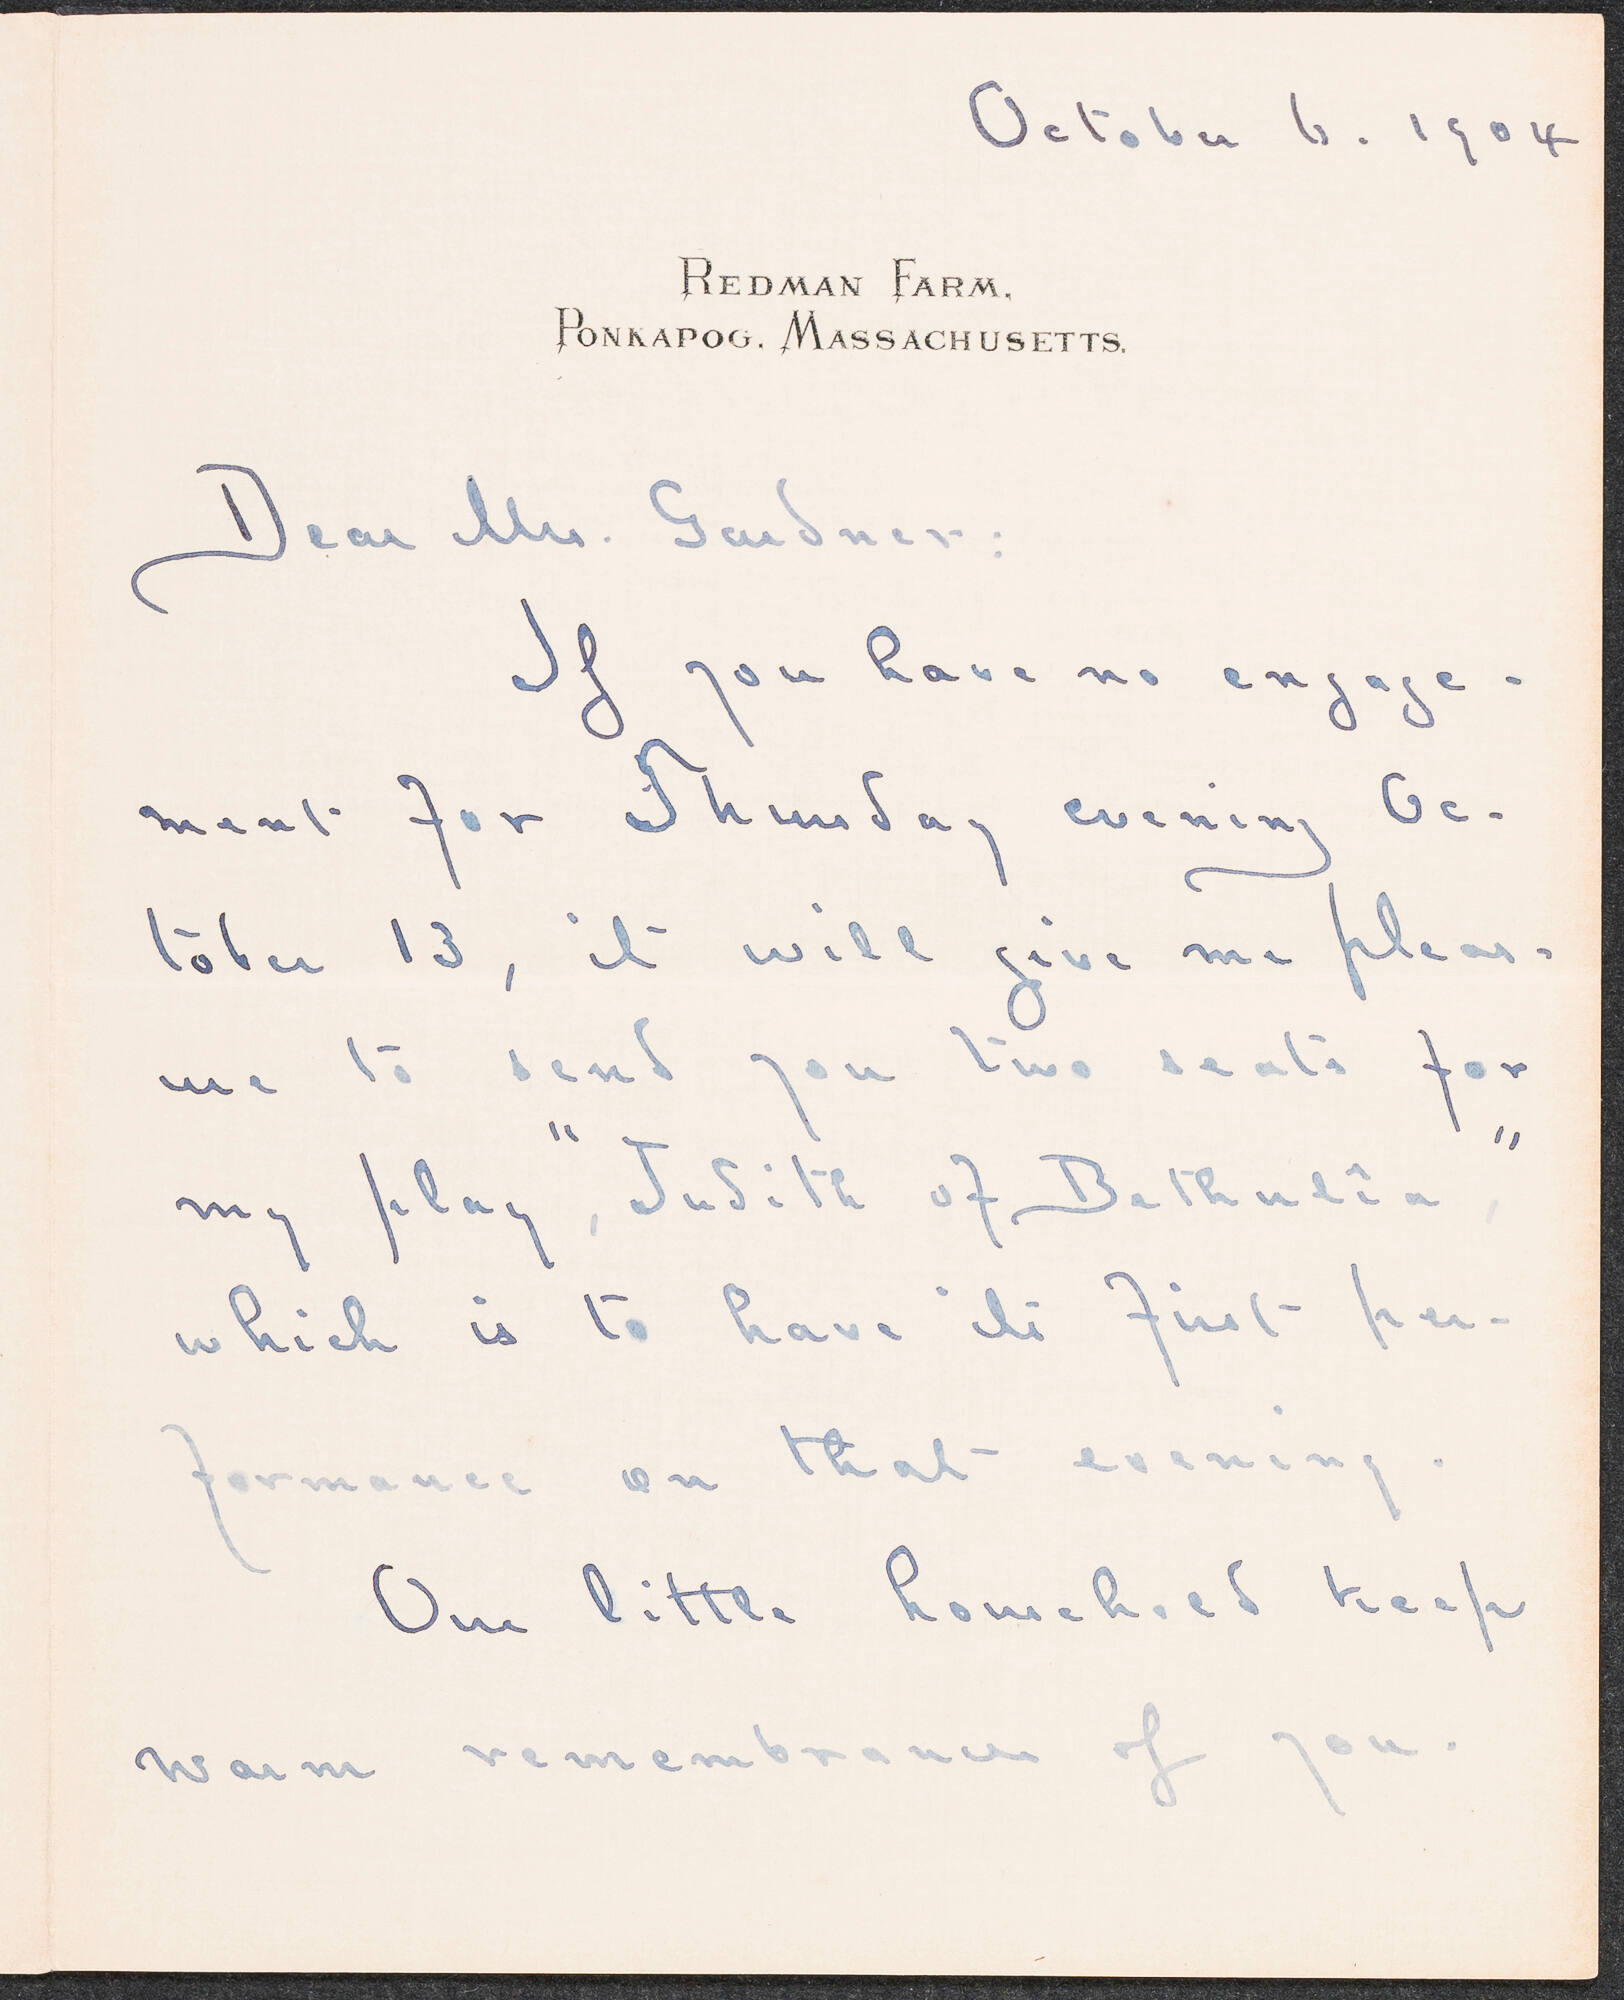 October 6. 1904
REDMAN FARM,
PONKAPOG, MASSACHUSETTS.
Dear Mrs. Gardner:
If you have no engage-
ment for Thursday evening Oc-
tober 13, it will give me pleas-
ure to send you two seats for
my play, "Judith of Bethulîa,"
which is to have its first per-
formance on that evening.
Our little household keep
warm remembrances of you.